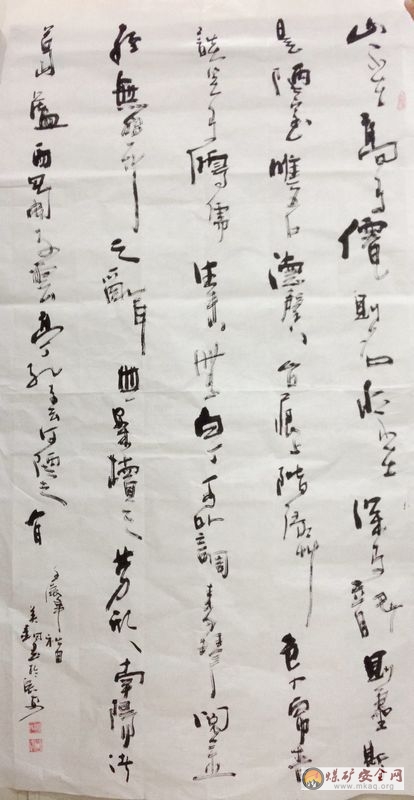 山不在高有僊則名水不在深有龍則靈斯
是陋室唯吾德馨苔痕上階綠艸色入簾青
談笑有鴻儒往來無白丁可以調素琴閱金
經無絲竹之亂耳無案牘之勞形南陽諸
葛廬西蜀子雲亭孔子云何陋之有
煤矿安全网
www.mkaq.org